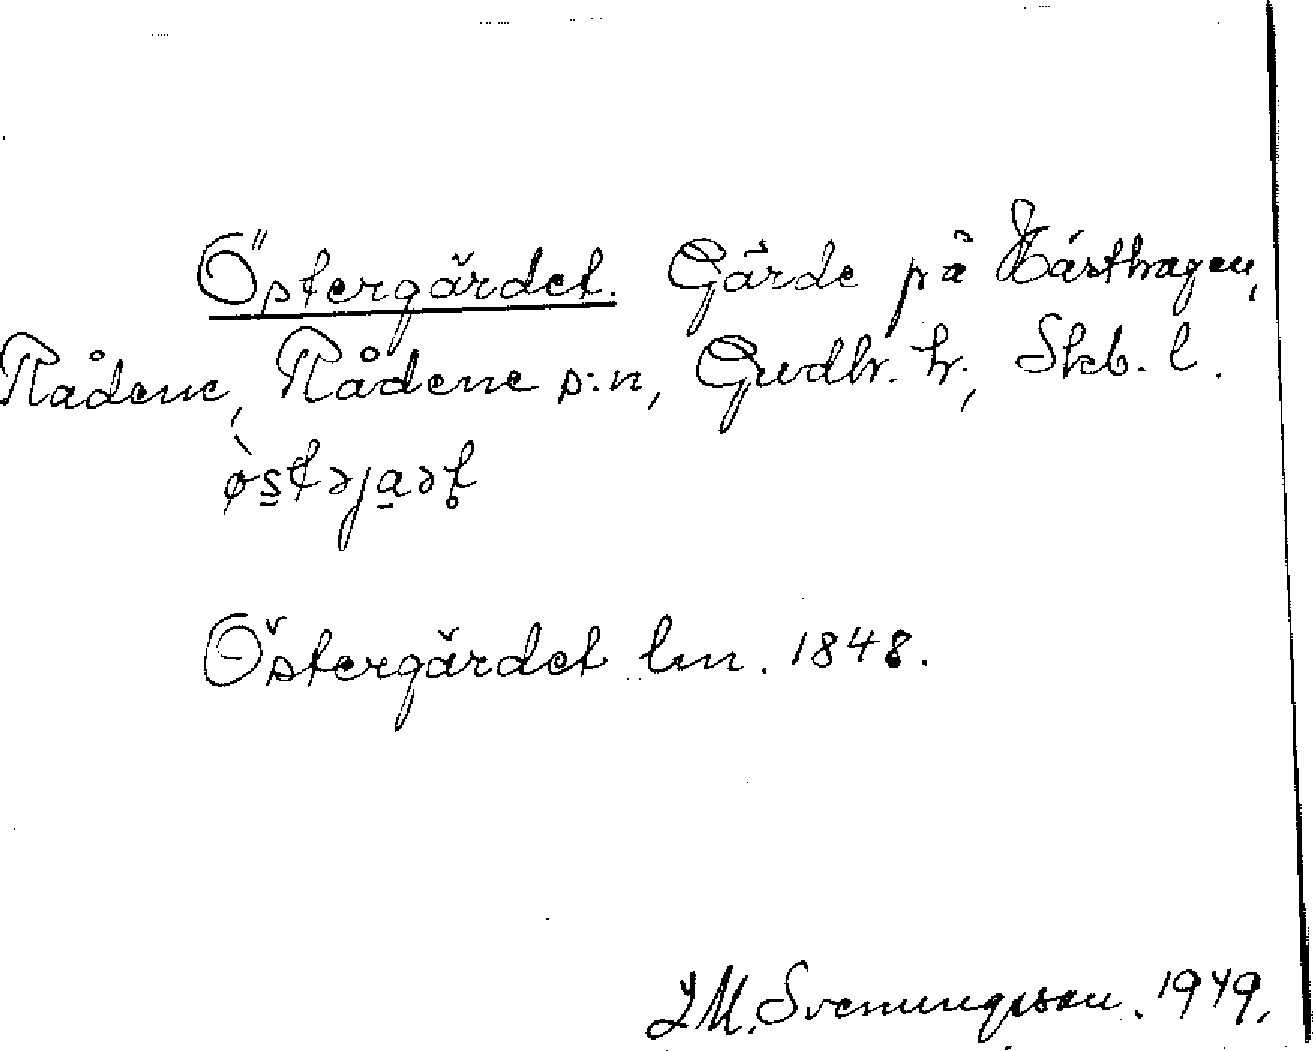 Östergärdet. Gärde på Hästhagen,
Rådene, Rådene s:n, Gudh. h., Skb. l.
Östergärdet lm. 1848.
I.M. Svenungsson. 1949.